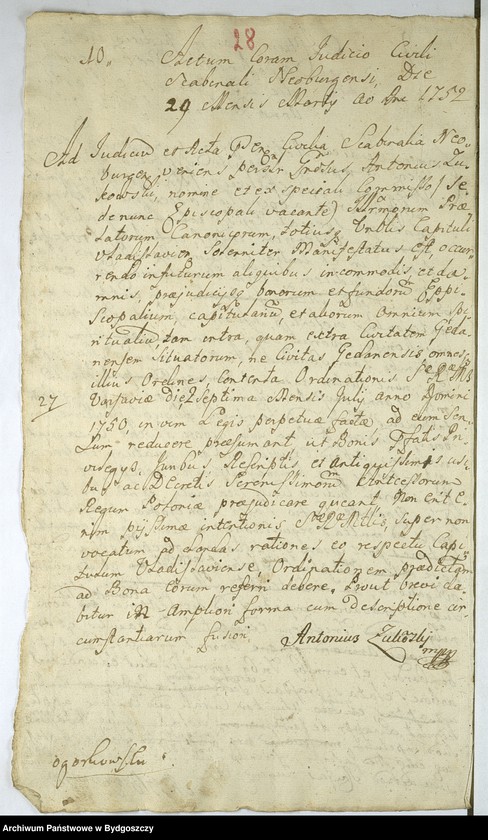 28
10,,
Actum Coram Judicio Civili
Scabinali Neoburgensi, Die
29 Mensis Martij Ao Dni 1752
Ad Judiciũ et Acta Civilia Scabinalia Neo,,
burgen veniens Antonius Zu
nomine et ex speciali Commisso /Se,,
de nunc Episcopali vacante/ Præ
latorum Canonicorum, totius Capituli
Vladislavien Solenniter Manifestatus est, occur,,
rendo in futurum aliquibus incommodis, et da
mnis, præjudicijsq bonorum et fundorũ Eppi
scopalium, capitulariũ, et aliorum omnium Spi
ritualiũ tam intra, quam extra Civitatem Geda
nensem Situatorum, ne Civitas Gedanensis, omnes,,
illius Ordines, Contenta Ordinationis
27
Varsaviæ Die Septima Mensis Julij anno Domini
1750, in vim Legis perpetuæ factæ ad eum Sen,,
sum reducere præsumant, ut Bonis Pri
vilegijs, Juribus Rescriptis, et antiquissimis usi
bus ac Decretis Serenissimorũ Antecessorum
Regum Poloniæ præjudicare queant, Non erit E
nim pijssimæ intentionis Super non
vocatum ad rationes eo respectu Capi
tulum Vladislaviense, Ordinationem prædictam
ad Bona eorum referri debere. Prout brevi da
bitur in Ampliori forma cum descriptione cir
cumstantiarum fusiori
Antonius
mpp
Ogorkowski
Archiwum Państwowe w Bydgoszczy